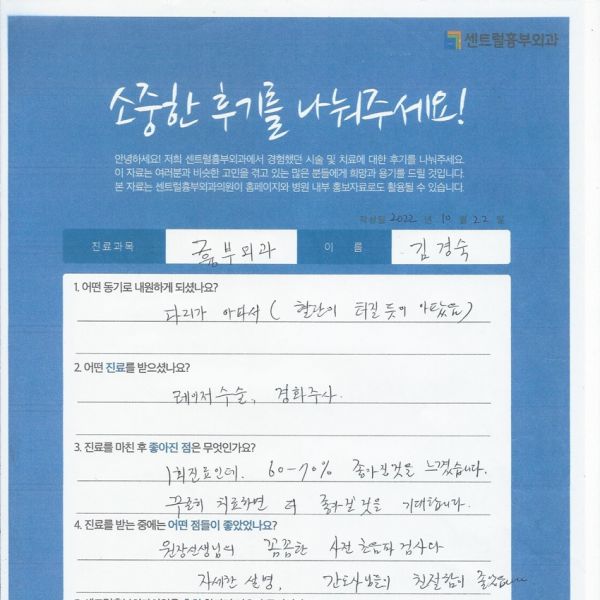 센트럴흉부외과
소중한 후기를 나눠주세요!
안녕하세요! 저희 센트럴흉부외과에서 경험했던 시술 및 치료에 대한 후기를 나눠주세요.
이 자료는 여러분과 비슷한 고민을 겪고 있는 많은 분들에게 희망과 용기를 드릴 것입니다.
본 자료는 센트럴흉부외과의원이 홈페이지와 병원 내부 홍보자료로도 활용될 수 있습니다.
작성일 2022 년 10 월 22 일
진료과목 흉부외과 이 름 김경숙
1. 어떤 동기로 내원하게 되셨나요?
다리가 아파서 ( 혈관이 터질듯이 아팠음)
2. 어떤 진료를 받으셨나요?
레이저수술, 경화주사.
3. 진료를 마친 후 좋아진 점은 무엇인가요?
1회진료인데. 60-70% 좋아진것을 느꼈습니다.
꾸준히 치료하면 더 좋아질것을 기대합니다.
4. 진료를 받는 중에는 어떤 점들이 좋았었나요?
원장선생님의 꼼꼼한 사전 초음파 검사와
자세한 설명, 간호사님들의 친절함이 좋았